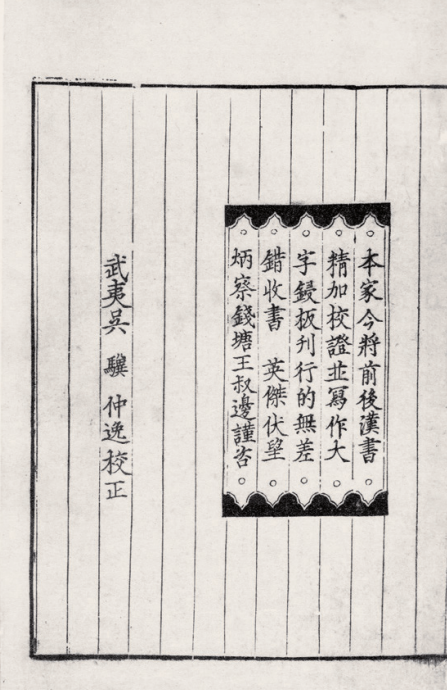 本家今將前後漢書
精加校證並寫作大
字鋟板刊行的無差
錯收書 英傑伏望
炳察錢塘王叔邊謹咨
武夷吳 驥 仲逸校正